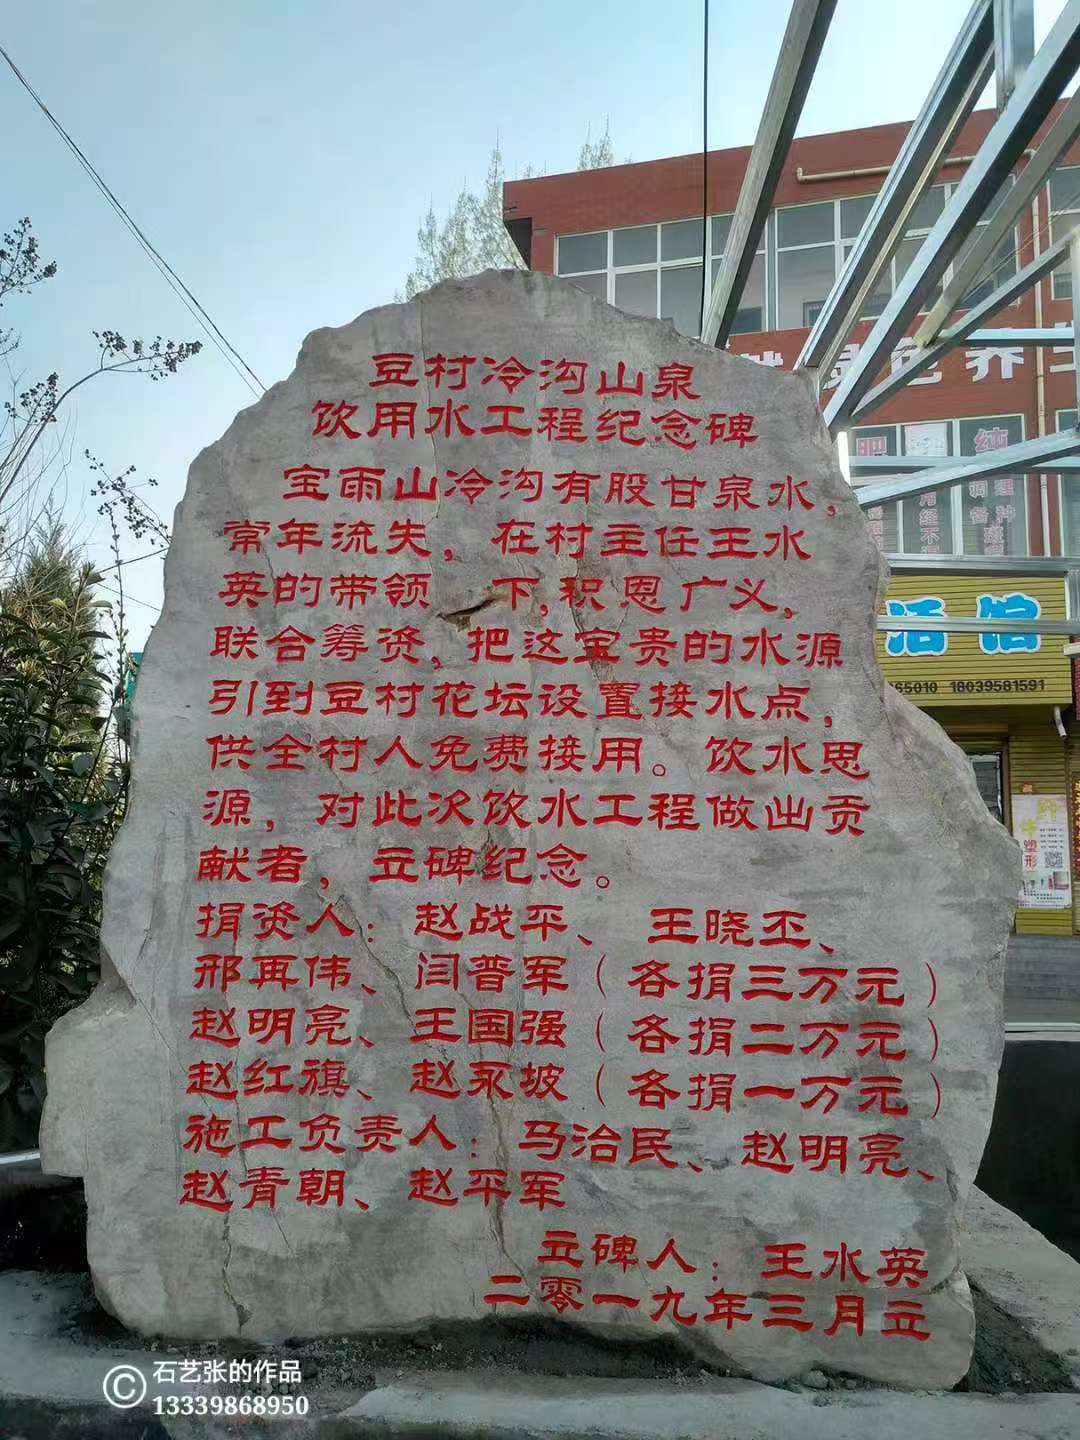 豆村冷沟山泉
饮用水工程纪念碑
宝雨山冷沟有股甘泉水，
常年流失，在村主任王水
英的带领 下，积恩广义，
联合筹资，把这宝贵的水源
引到豆村花坛设置接水点，
供全村人免费接用。饮水思
源，对此次饮水工程做出贡
献者，立碑纪念。
捐资人：赵战平、王晓丕、
邢再伟、闫普军（各捐三万元）
赵明亮、王国强（各捐二万元）
赵红旗、赵永坡（各捐一万元）
施工负责人：马治民、赵明亮、
赵青朝、赵平军
立碑人：王水英
二零一九年三月立
绿色养生
活馆
65010 18039581591
塑形
©石艺张的作品
13339868950